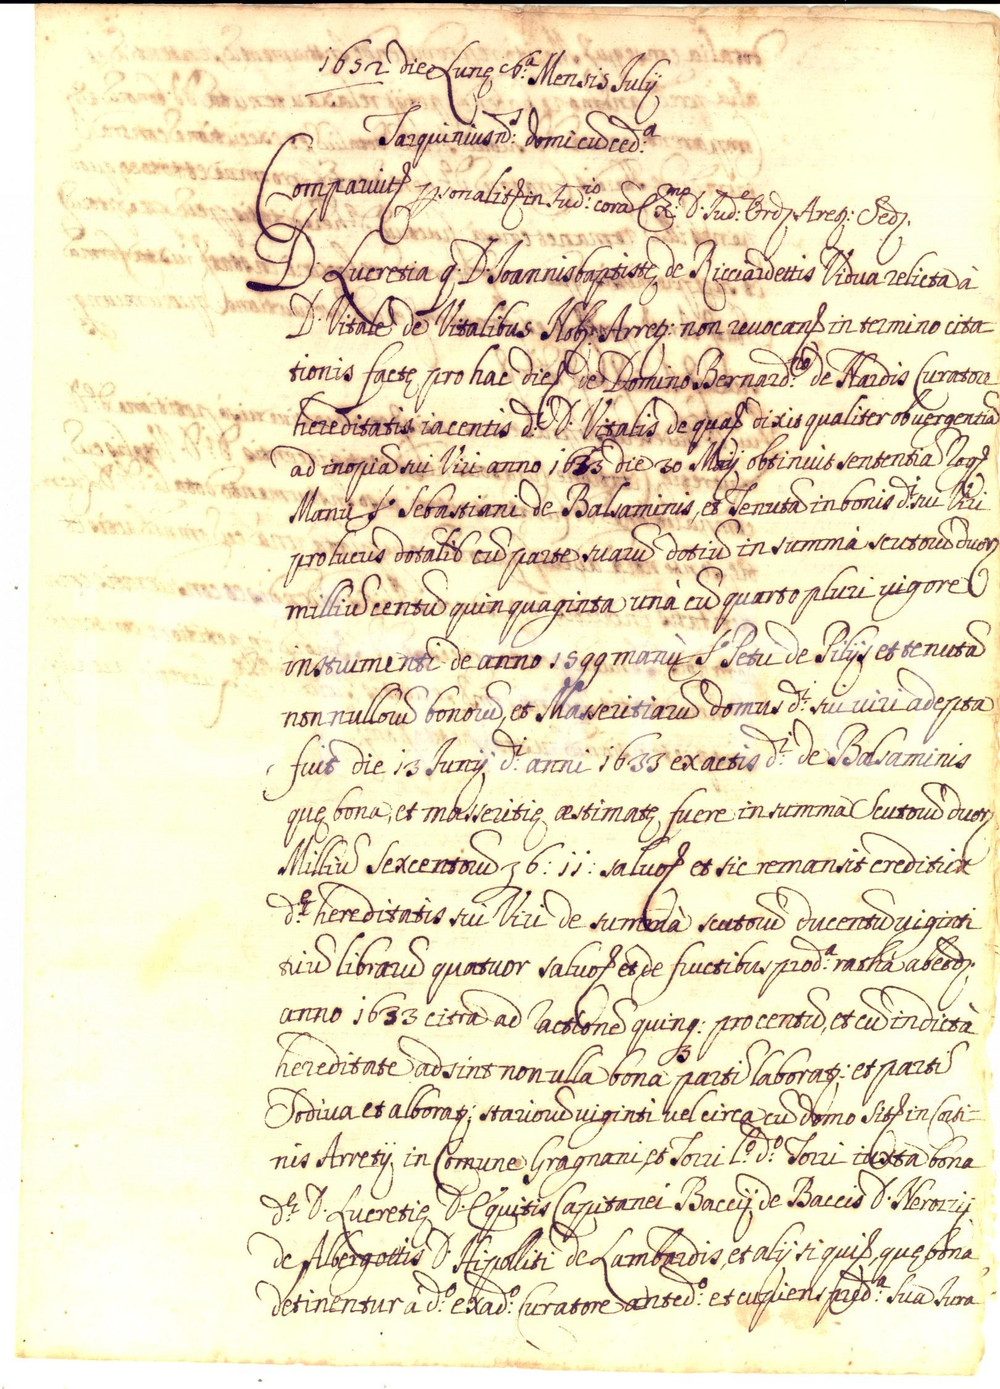 1652 die Lunę Mensis Julij
Tarquinius domi
Comparuit psonalit in Jud:io corã D. Jud:e Ord: Areti:
D. Lucretia q. D. Joannisbaptistę de Ricciardettis Vidua relicta à
D. Vitale de Vitalibus Nob: Arret: non revocanɗ in termino cita
tionis factę pro hac die de Domino Bernard:no de Nardis Curatore
hereditatis iacentis d:i D. Vitalis de qua dixit qualiter ob vergentiã
ad inopiã sui Viri anno 1633 die 30 Maij obtinuit sententiã Rog:
Manu S. Sebastiani de Balsaminis, et Tenutã in bonis d:i sui Viri
pro lucris dotalib cũ parte suarũ dotiũ in summa scutorũ duor
milliũ centũ quinquaginta unà cũ quarto pluri vigore
instrumenti de anno 1599 manu S. Petri de Pilijs et tenutã
nonnullorũ bonorũ, et Masseritiarũ domus d:i sui viri adepta
fuit die 13 Junij d:i anni 1633 ex actis d:i de Balsaminis
quę bona, et masseritię æstimatę fuere in summa Scutorũ duor
Milliũ sexcentorũ 36: 11: salvo et sic remansit creditrix
d:ę hereditatis sui Viri de summa scutorũ ducentũ viginti
triũ librarũ quatuor salvo et de fructibus prod: ratha ab
anno 1633 citra ad ractionẽ quinq: pro centũ, et cũ in dicta
hereditate adsint nonulla bona partĩ laborat: et partĩ
Sodiva et alborat: stariorũ viginti vel circa cũ domo sit in Corti-
nis Arretij in Comune Gragnani, et Torri l:o d:o Torri iuxta bona
d:ę D. Lucretię D. Equitis Capitanei Baccij de Baccis D. Nerozzij
de Albergottis D. Hipolliti de Lambardis, et alij si qui, quę bona
detinentur à d:o ex ad:o Curatore anted:o et cupiens pred:a sua Jura